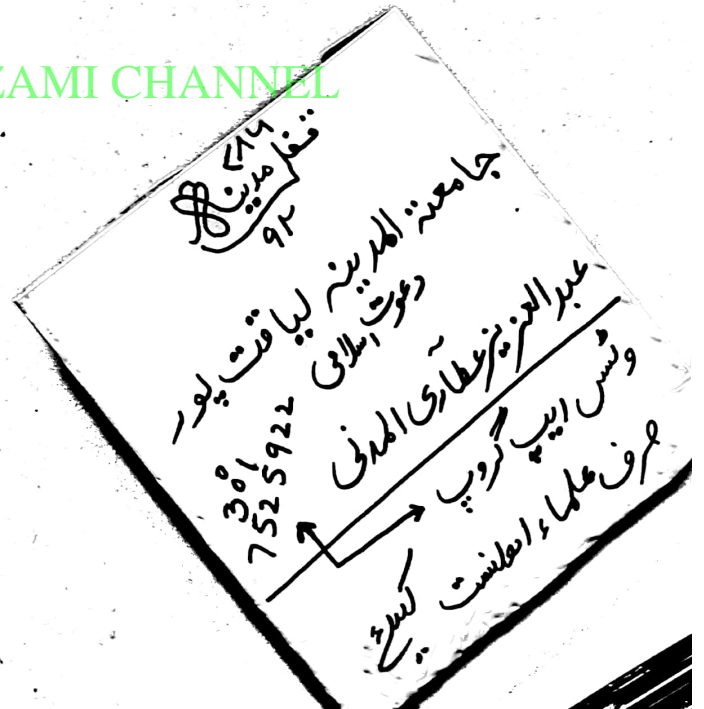 ZAMI CHANNEL
۷۸۶
قفل مدینہ
۹۲
جامعۃ المدینہ لیاقت پور
دعوت اسلامی
عبدالعزیز عطاری المدنی
0301
7525922
وٹس ایپ گروپ
صرف علماء اہلسنت کیلئے